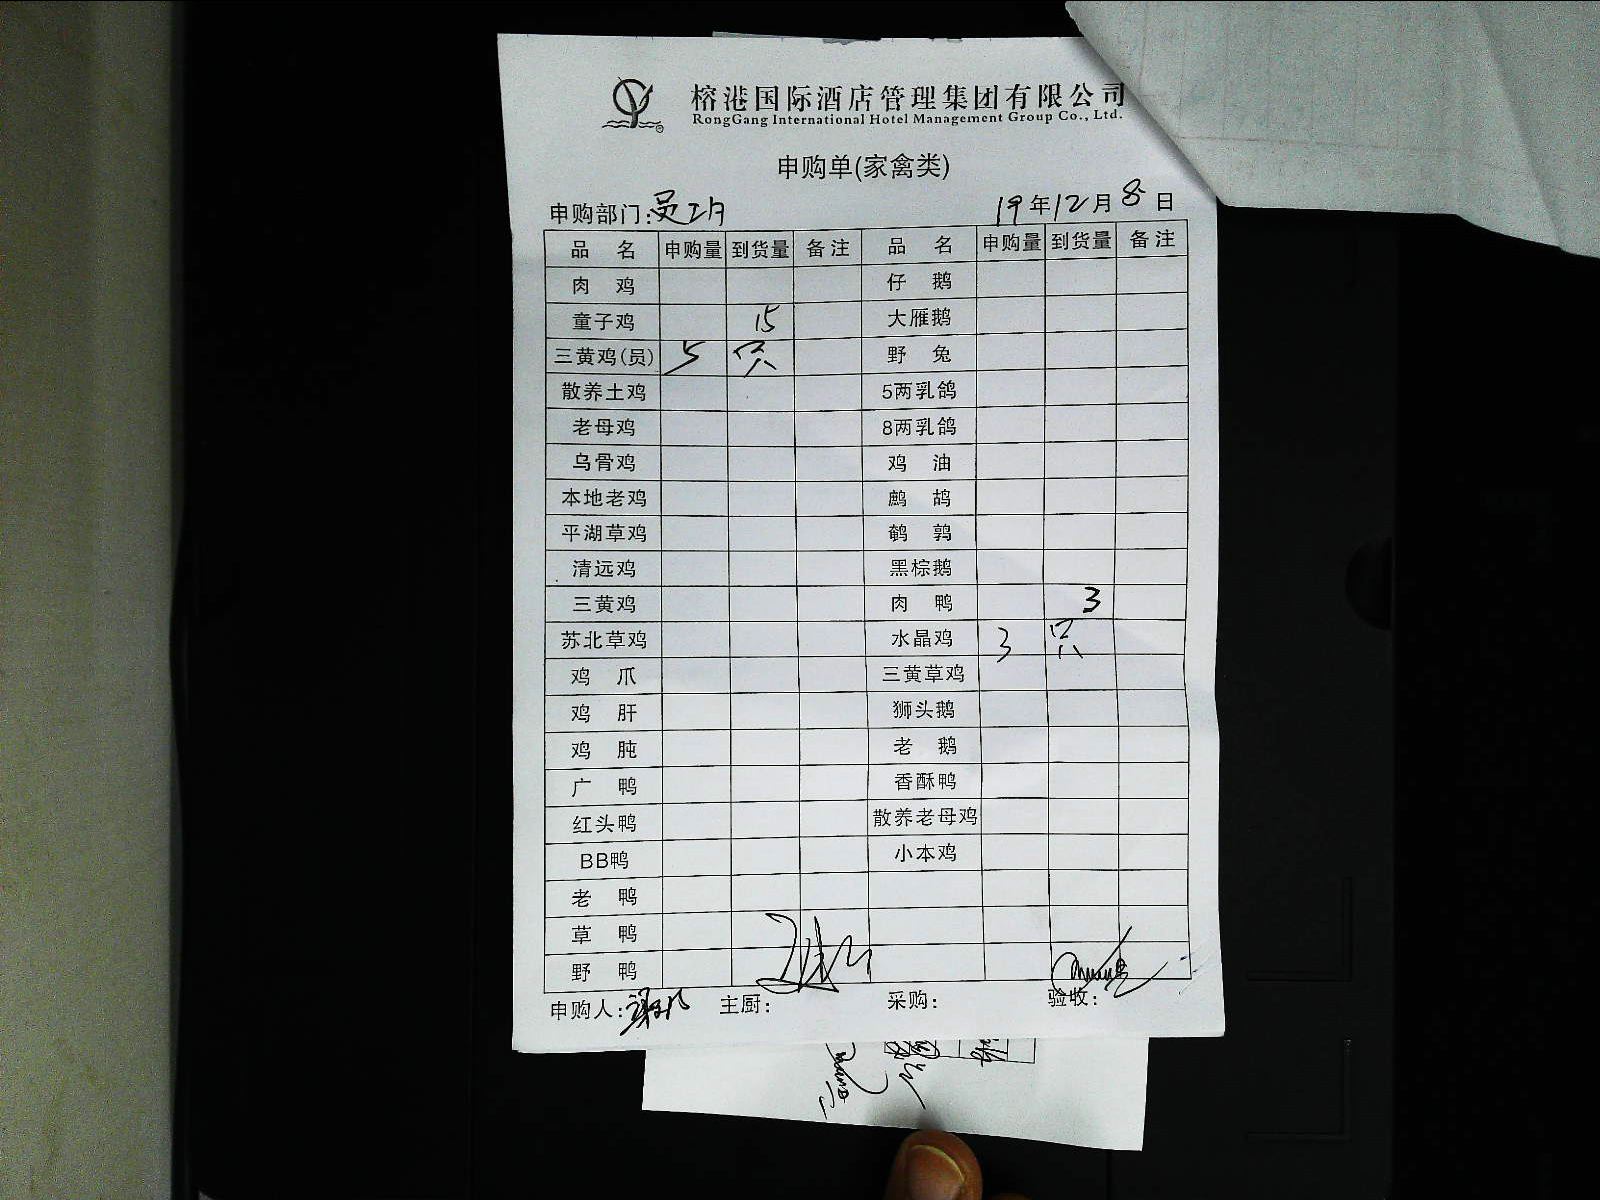 榕港国际酒店管理集团有限公司
RongGang International Hotel Management Group Co., Ltd.
申购单(家禽类)
申购部门:员工 19年12月8日
品 名 申购量 到货量 备注 品 名 申购量 到货量 备注
肉 鸡 仔 鹅
童子鸡 15 大雁鹅
三黄鸡(员) 5 只 野 兔
散养土鸡 5两乳鸽
老母鸡 8两乳鸽
乌骨鸡 鸡 油
本地老鸡 鹧 鸪
平湖草鸡 鹌 鹑
清远鸡 黑棕鹅
三黄鸡 肉 鸭 3
苏北草鸡 水晶鸡 3 只
鸡 爪 三黄草鸡
鸡 肝 狮头鹅
鸡 肫 老 鹅
广 鸭 香酥鸭
红头鸭 散养老母鸡
BB鸭 小本鸡
老 鸭
草 鸭
野 鸭
申购人: 主厨: 采购: 验收: